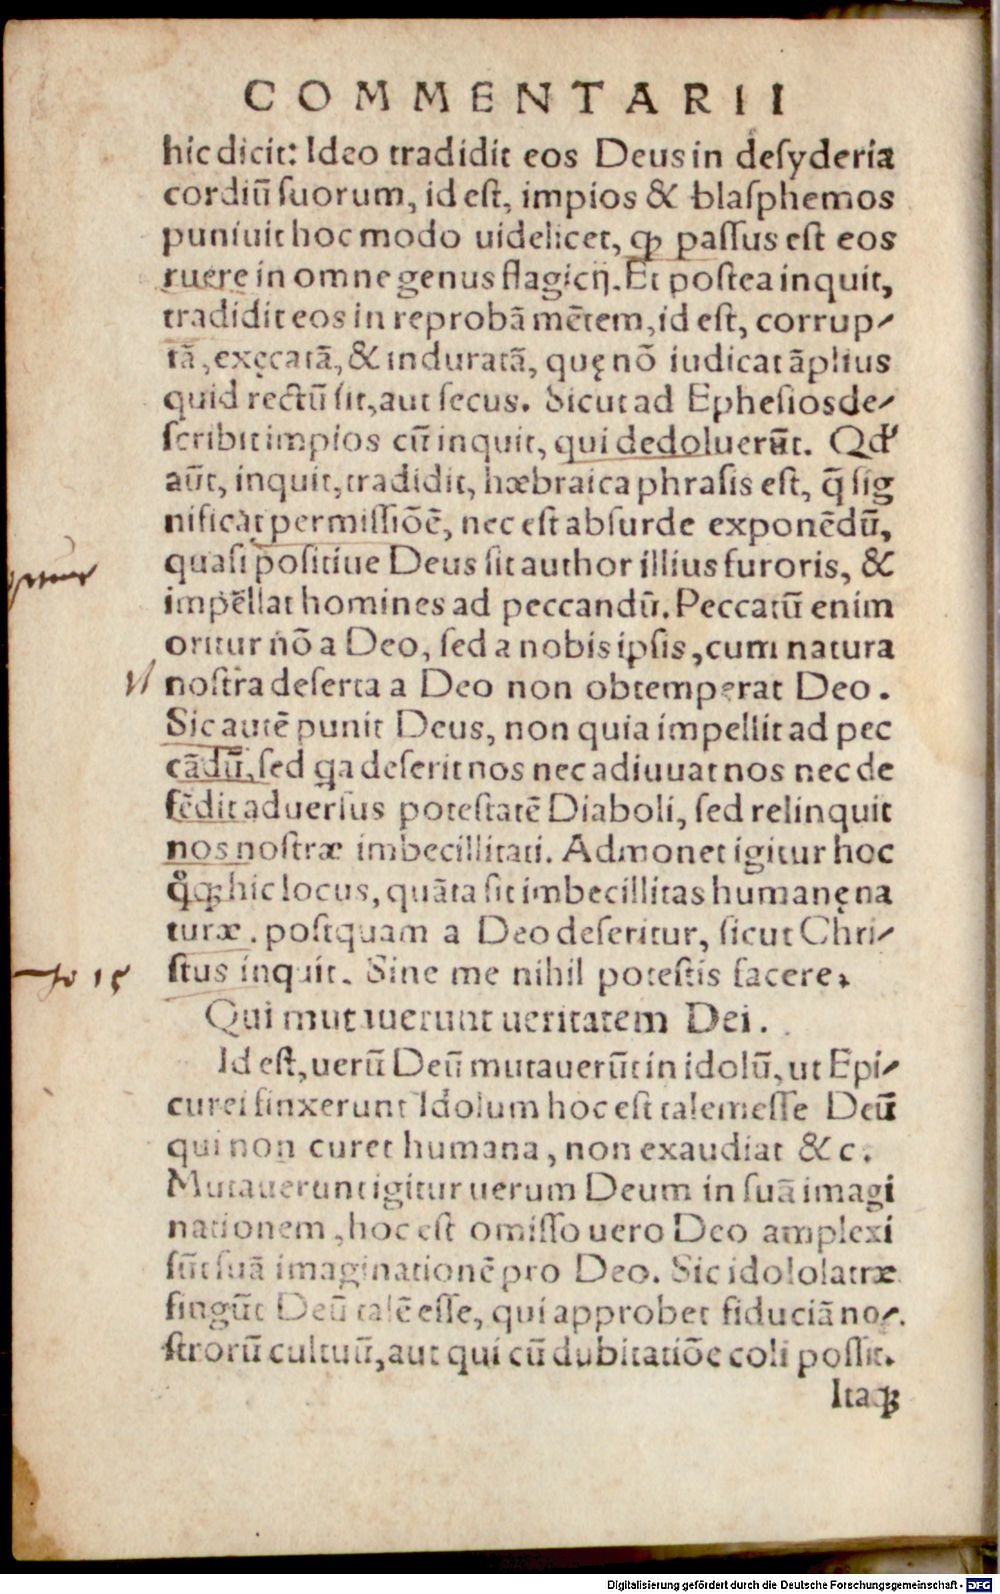 COMMENTARII
hic dicit: Ideo tradidit eos Deus in desyderia
cordiū suorum, id est, impios & blasphemos
puniuit hoc modo uidelicet, ꝙ passus est eos
ruere in omne genus flagicij. Et postea inquit,
tradidit eos in reprobā mētem, id est, corrup-
tā, exęcatā, & induratā, quę nō iudicat āplius
quid rectū sit, aut secus. Sicut ad Ephesios de-
scribit impios cū inquit, qui dedoluerūt. Qd'
aūt, inquit, tradidit, hæbraica phrasis est, q̄ sig
nificat permissiōē, nec est absurde exponēdū,
quasi positiue Deus sit author illius furoris, &
impēllat homines ad peccandū. Peccatū enim
oritur nō a Deo, sed a nobis ipsis, cum natura
nostra deserta a Deo non obtemperat Deo.
Sic autē punit Deus, non quia impellit ad pec
cādū, sed qa deserit nos nec adiuuat nos nec de
fēdit aduersus potestatē Diaboli, sed relinquit
nos nostræ imbecillitati. Admonet igitur hoc
qͦꝗꝫ hic locus, quāta sit imbecillitas humanę na
turæ. postquam a Deo deseritur, sicut Chri-
stus inquit. Sine me nihil potestis facere.
Io 15
Qui mutauerunt ueritatem Dei.
Id est, uerū Deū mutauerūt in idolū, ut Epi-
curei finxerunt Idolum hoc est talem esse Deū
qui non curet humana, non exaudiat & c.
Mutauerunt igitur uerum Deum in suā imagi
nationem, hoc est omisso uero Deo amplexi
sūt suā imaginationē pro Deo. Sic idololatræ
fingūt Deū talē esse, qui approbet fiduciā no-
strorū cultuū, aut qui cū dubitatiōe coli possit.
Itaqꝫ
Digitalisierung gefördert durch die Deutsche Forschungsgemeinschaft - DFG